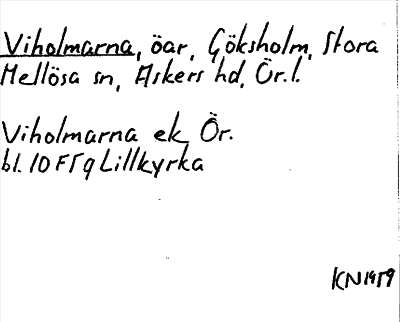 Viholmarna, öar, Göksholm, Stora
Mellösa sn, Askers hd, Ör. l.
Viholmarna ek, Ör.
bl. 10 F 5 g Lillkyrka
KN 1959